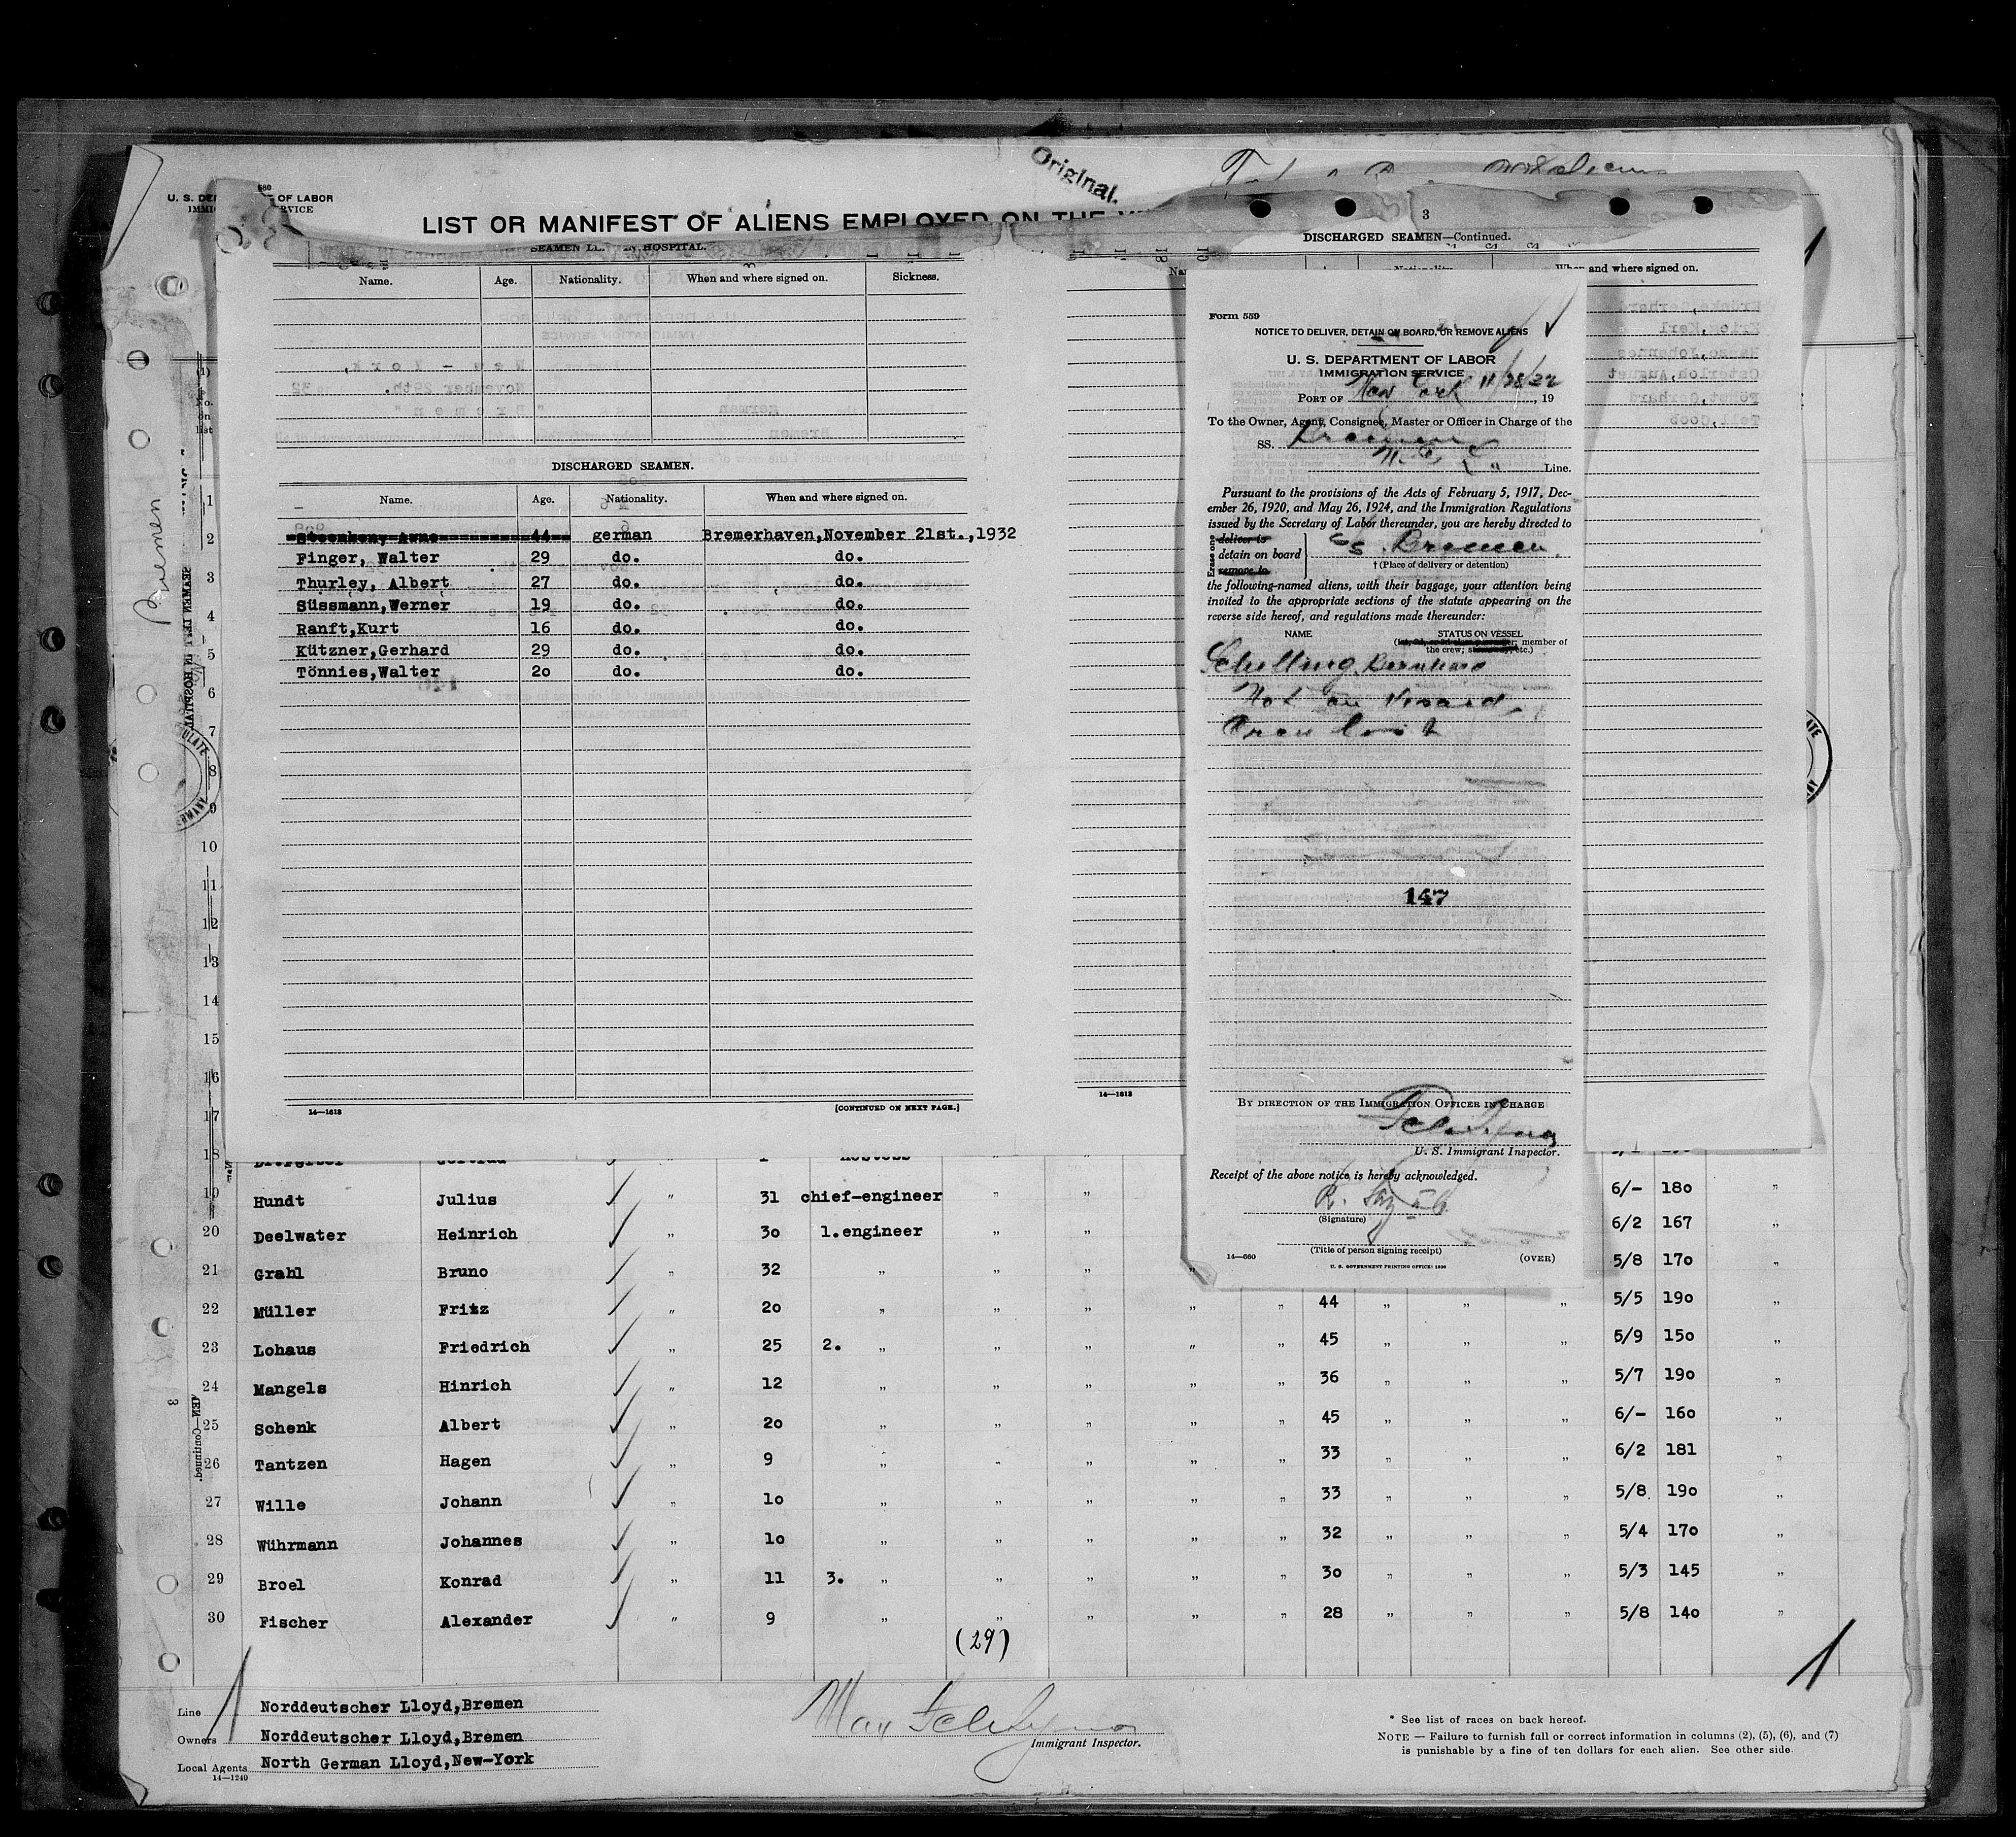 Original.
U. S. DE OF LABOR
IMMI RVICE
LIST OR MANIFEST OF ALIENS EMPLOYED ON THE
SEAMEN IN HOSPITAL.
Name. Age. Nationality. When and where signed on. Sickness.
DISCHARGED SEAMEN.
Name. Age. Nationality. When and where signed on.
44 german Bremerhaven,November 21st.,1932
Finger, Walter 29 do. do.
Thurley, Albert 27 do. do.
Süssmann,Werner 19 do. do.
Ranft,Kurt 16 do. do.
Kützner,Gerhard 29 do. do.
Tönnies,Walter 2o do. do.
14—1613 [CONTINUED ON NEXT PAGE.]
3
DISCHARGED SEAMEN—Continued.
When and where signed on.
14—1613
Form 559
NOTICE TO DELIVER, DETAIN ON BOARD, OR REMOVE ALIENS
U. S. DEPARTMENT OF LABOR
IMMIGRATION SERVICE
PORT OF New York 11/28/32, 19
To the Owner, Agent, Consignee, Master or Officer in Charge of the
SS. Bremen
Line.
Pursuant to the provisions of the Acts of February 5, 1917, Dec-
ember 26, 1920, and May 26, 1924, and the Immigration Regulations
issued by the Secretary of Labor thereunder, you are hereby directed to
Erase one
deliver to
detain on board
remove to
SS. Bremen.
† (Place of delivery or detention)
the following-named aliens, with their baggage, your attention being
invited to the appropriate sections of the statute appearing on the
reverse side hereof, and regulations made thereunder:
NAME STATUS ON VESSEL
member of
the crew; etc.)
Schilling, Bernhard
Not on Visaed
Crew List
147
BY DIRECTION OF THE IMMIGRATION OFFICER IN CHARGE
U. S. Immigrant Inspector.
Receipt of the above notice is hereby acknowledged.
(Signature)
(Title of person signing receipt)
14—660 (OVER)
U. S. GOVERNMENT PRINTING OFFICE: 1930
Bremen
(1)
No.
on
list
1
2
3
4
5
6
7
8
9
10
11
12
13
14
15
16
17
18
19 Hundt Julius " 31 chief-engineer " " 6/- 18o "
20 Deelwater Heinrich " 3o 1.engineer " " 6/2 167 "
21 Grahl Bruno " 32 " " " " 5/8 17o "
22 Müller Fritz " 2o " " " " " 44 " " " 5/5 19o "
23 Lohaus Friedrich " 25 2. " " " " " 45 " " " 5/9 15o "
24 Mangels Hinrich " 12 " " " " " 36 " " " 5/7 19o "
25 Schenk Albert " 2o " " " " " 45 " " " 6/- 16o "
26 Tantzen Hagen " 9 " " " " " 33 " " " 6/2 181 "
27 Wille Johann " 1o " " " " " 33 " " " 5/8 19o "
28 Wührmann Johannes " 1o " " " " " 32 " " " 5/4 17o "
29 Broel Konrad " 11 3. " " " " " 3o " " " 5/3 145 "
30 Fischer Alexander " 9 " " " " " 28 " " " 5/8 14o "
(29)
Line Norddeutscher Lloyd,Bremen
Owners Norddeutscher Lloyd,Bremen
Local Agents North German Lloyd,New-York
14—1240
Max
Immigrant Inspector.
* See list of races on back hereof.
NOTE — Failure to furnish full or correct information in columns (2), (5), (6), and (7)
is punishable by a fine of ten dollars for each alien. See other side.